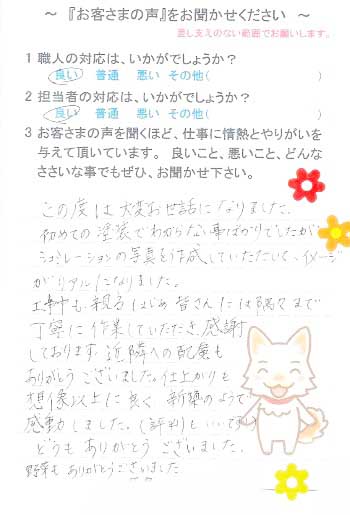 ～ 『お客さまの声』をお聞かせください ～
差し支えのない範囲でお願いします。
1 職人の対応は、いかがでしょうか？
良い 普通 悪い その他( )
2 担当者の対応は、いかがでしょうか？
良い 普通 悪い その他( )
3 お客さまの声を聞くほど、仕事に情熱とやりがいを
与えて頂いています。 良いこと、悪いこと、どんな
ささいな事でもぜひ、お聞かせ下さい。
この度は大変お世話になりました。
初めての塗装でわからない事ばかりでしたが
シュミレーションの写真を作成していただいて、イメージ
がリアルになりました。
工事中も、親方はじめ皆さんには隅々まで
丁寧に作業していただき、感謝
しております。近隣への配慮も
ありがとうございました。仕上がりも
想像以上に良く 新築のようで
感動しました。(評判もいいです)
どうもありがとうございました。
野菜もありがとうございました